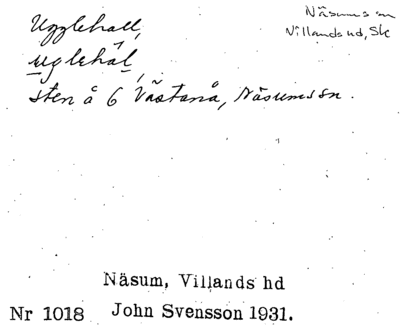 Ugglehall,
uglehal
Näsums sn
Villands hd, Sk
sten å 6 Västanå, Näsums sn.
Näsum, Villands hd
Nr 1018 John Svensson 1931.